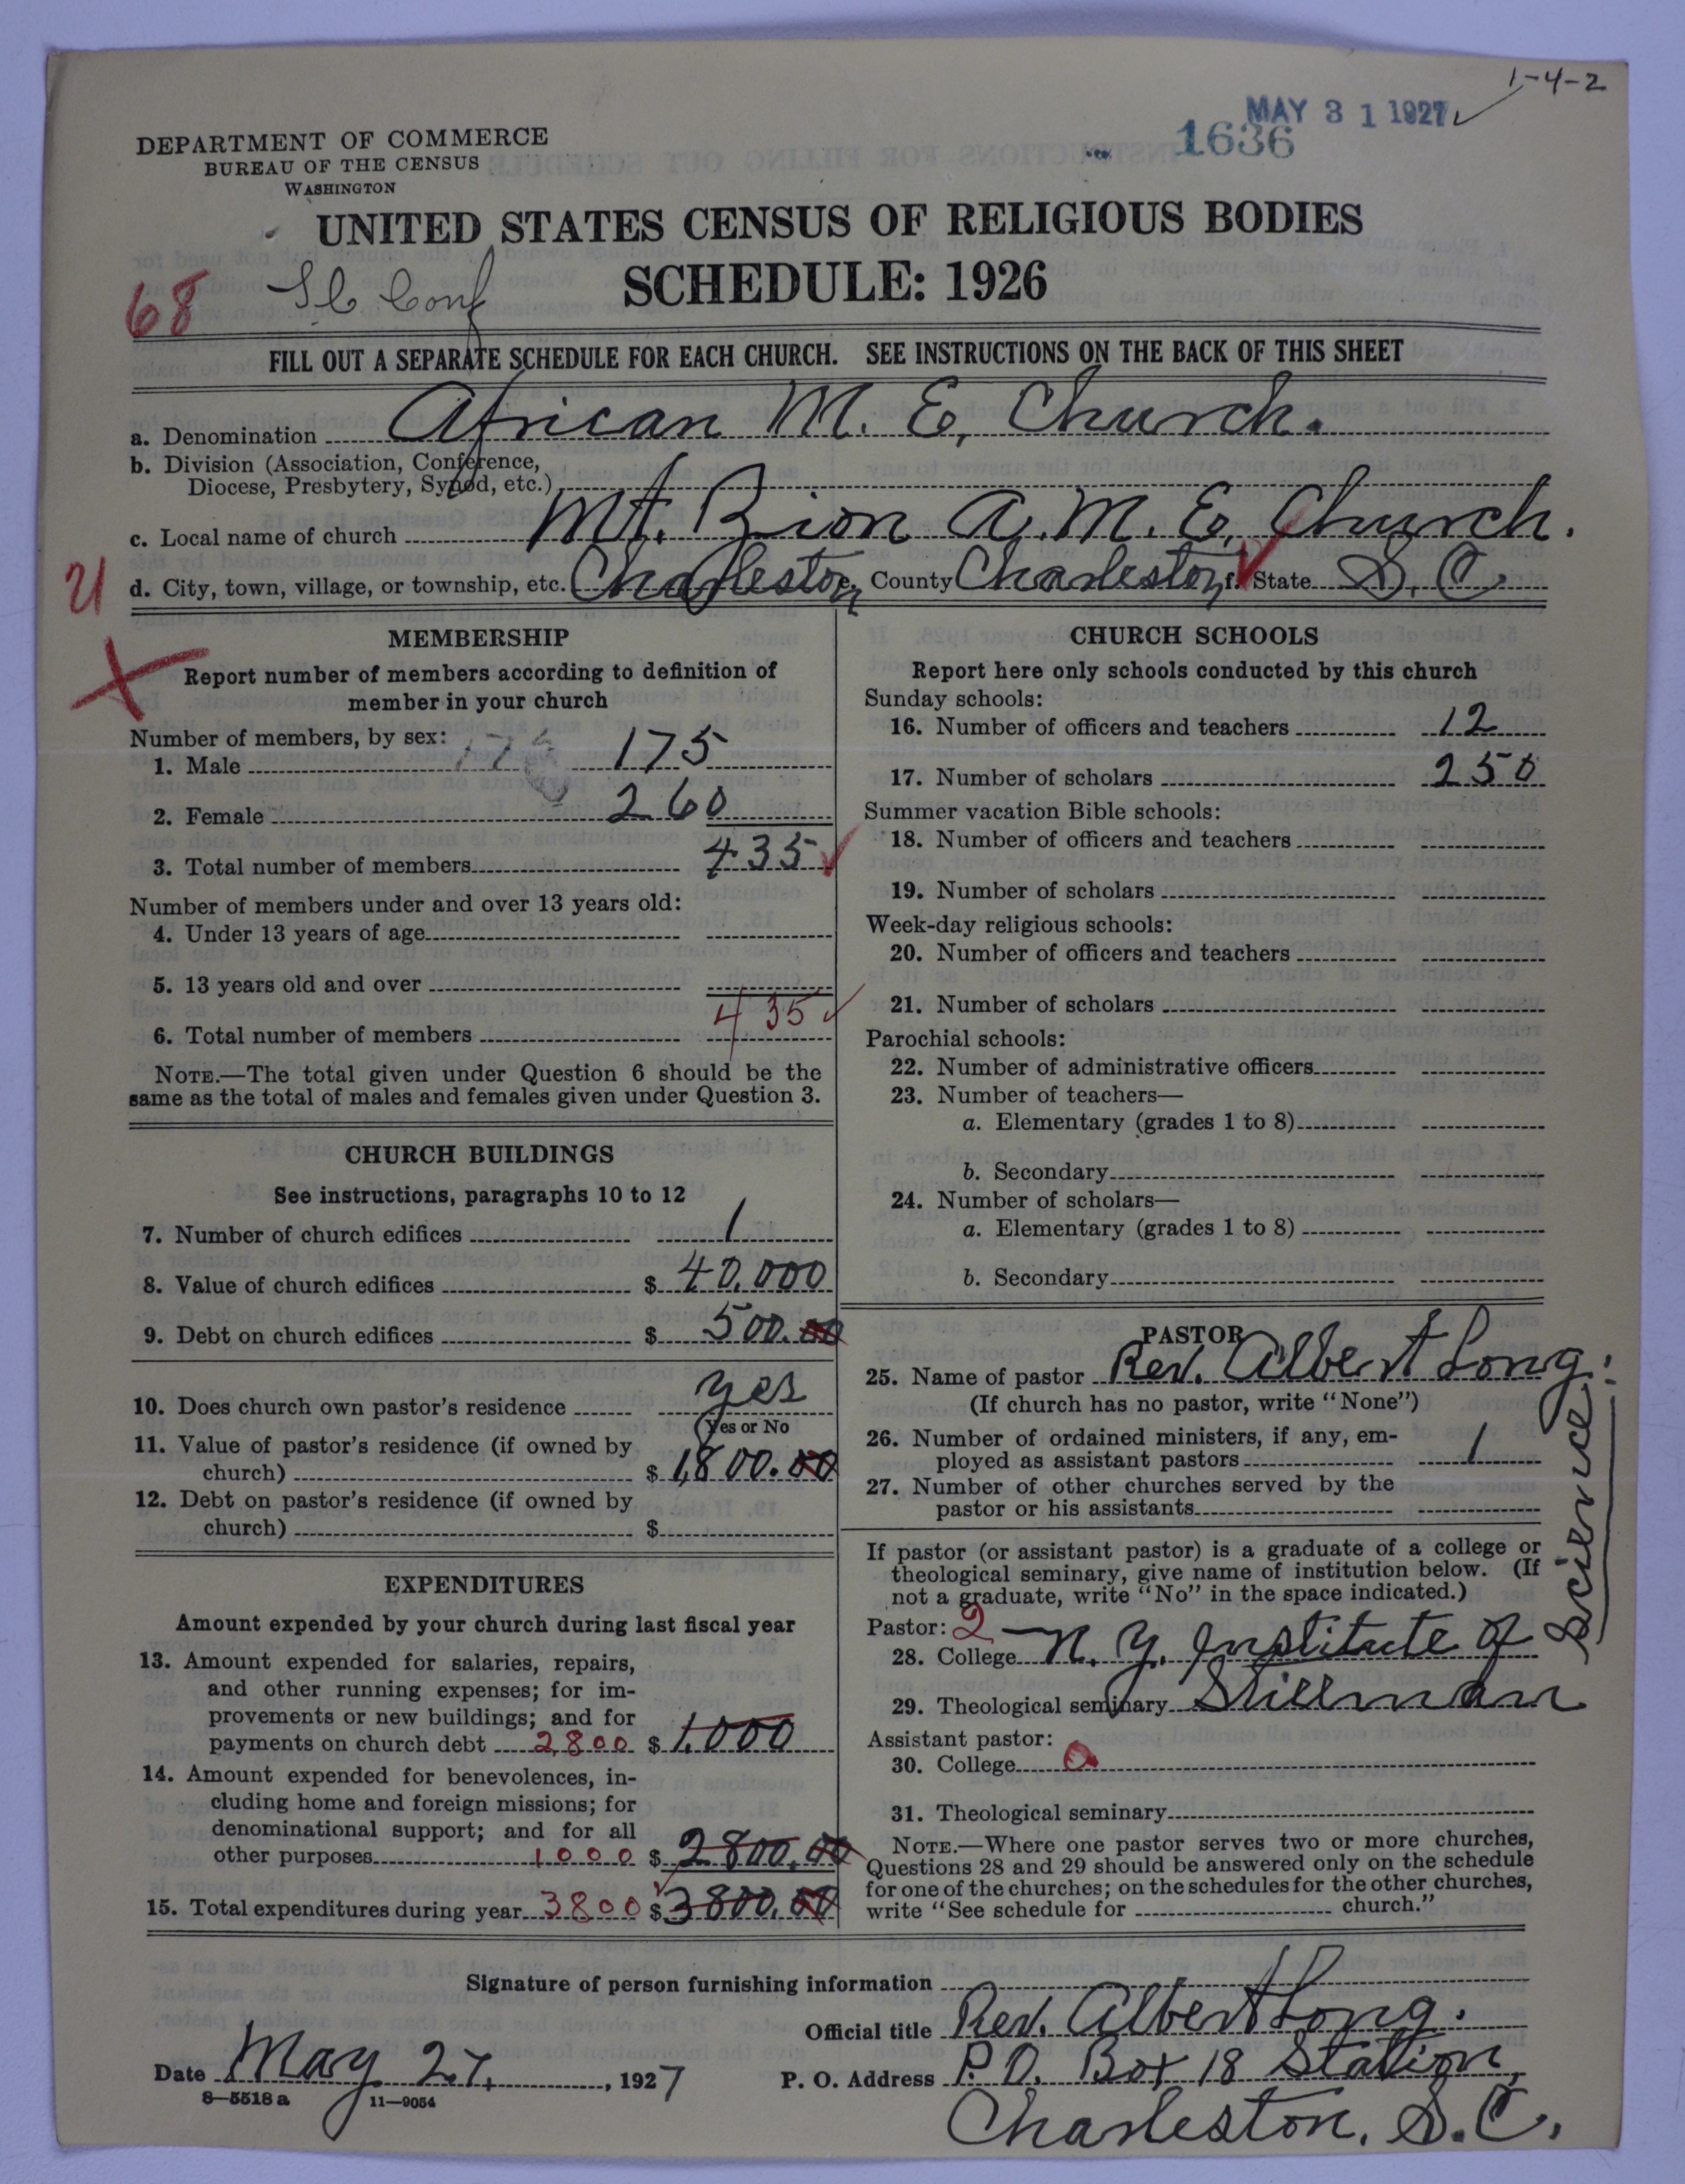 1-4-2
MAY 31 1927
1636
DEPARTMENT OF COMMERCE
BUREAU OF THE CENSUS
WASHINGTON
UNITED STATES CENSUS OF RELIGIOUS BODIES
SCHEDULE: 1926
68 S C Conf
FILL OUT A SEPARATE SCHEDULE FOR EACH CHURCH. SEE INSTRUCTIONS ON THE BACK OF THIS SHEET
a. Denomination African M. E. Church.
b. Division (Association, Conference,
Diocese, Presbytery, Synod, etc.)
c. Local name of church Mt. Zion A. M. E. Church.
d. City, town, village, or township, etc. Charleston e. County Charleston f. State S. C.
MEMBERSHIP
Report number of members according to definition of
member in your church
Number of members, by sex:
1. Male 175
2. Female 260
3. Total number of members 435
Number of members under and over 13 years old:
4. Under 13 years of age
5. 13 years old and over
6. Total number of members 435
NOTE.—The total given under Question 6 should be the
same as the total of males and females given under Question 3.
CHURCH BUILDINGS
See instructions, paragraphs 10 to 12
7. Number of church edifices 1
8. Value of church edifices $ 40,000
9. Debt on church edifices $ 500.00
10. Does church own pastor's residence yes
(Yes or No
11. Value of pastor's residence (if owned by
church) $ 1,800.00
12. Debt on pastor's residence (if owned by
church) $
EXPENDITURES
Amount expended by your church during last fiscal year
13. Amount expended for salaries, repairs,
and other running expenses; for im-
provements or new buildings; and for
payments on church debt 2800 $ 1,000
14. Amount expended for benevolences, in-
cluding home and foreign missions; for
denominational support; and for all
other purposes 1000 $ 2800.00
15. Total expenditures during year 3800 $ 3800.00
CHURCH SCHOOLS
Report here only schools conducted by this church
Sunday schools:
16. Number of officers and teachers 12
17. Number of scholars 250
Summer vacation Bible schools:
18. Number of officers and teachers
19. Number of scholars
Week-day religious schools:
20. Number of officers and teachers
21. Number of scholars
Parochial schools:
22. Number of administrative officers
23. Number of teachers—
a. Elementary (grades 1 to 8)
b. Secondary
24. Number of scholars—
a. Elementary (grades 1 to 8)
b. Secondary
PASTOR
25. Name of pastor Rev. Albert Long.
(If church has no pastor, write "None")
26. Number of ordained ministers, if any, em-
ployed as assistant pastors 1
27. Number of other churches served by the
pastor or his assistants
If pastor (or assistant pastor) is a graduate of a college or
theological seminary, give name of institution below. (If
not a graduate, write "No" in the space indicated.)
Pastor: 2
28. College N. Y. Institute of Science
29. Theological seminary Stillman
Assistant pastor:
30. College 0
31. Theological seminary
NOTE.—Where one pastor serves two or more churches,
Questions 28 and 29 should be answered only on the schedule
for one of the churches; on the schedules for the other churches,
write "See schedule for church."
Signature of person furnishing information
Official title Rev. Albert Long.
Date May 27, 1927 P. O. Address P. O. Box 18 Station,
8—5518 a 11—9054
Charleston, S. C.